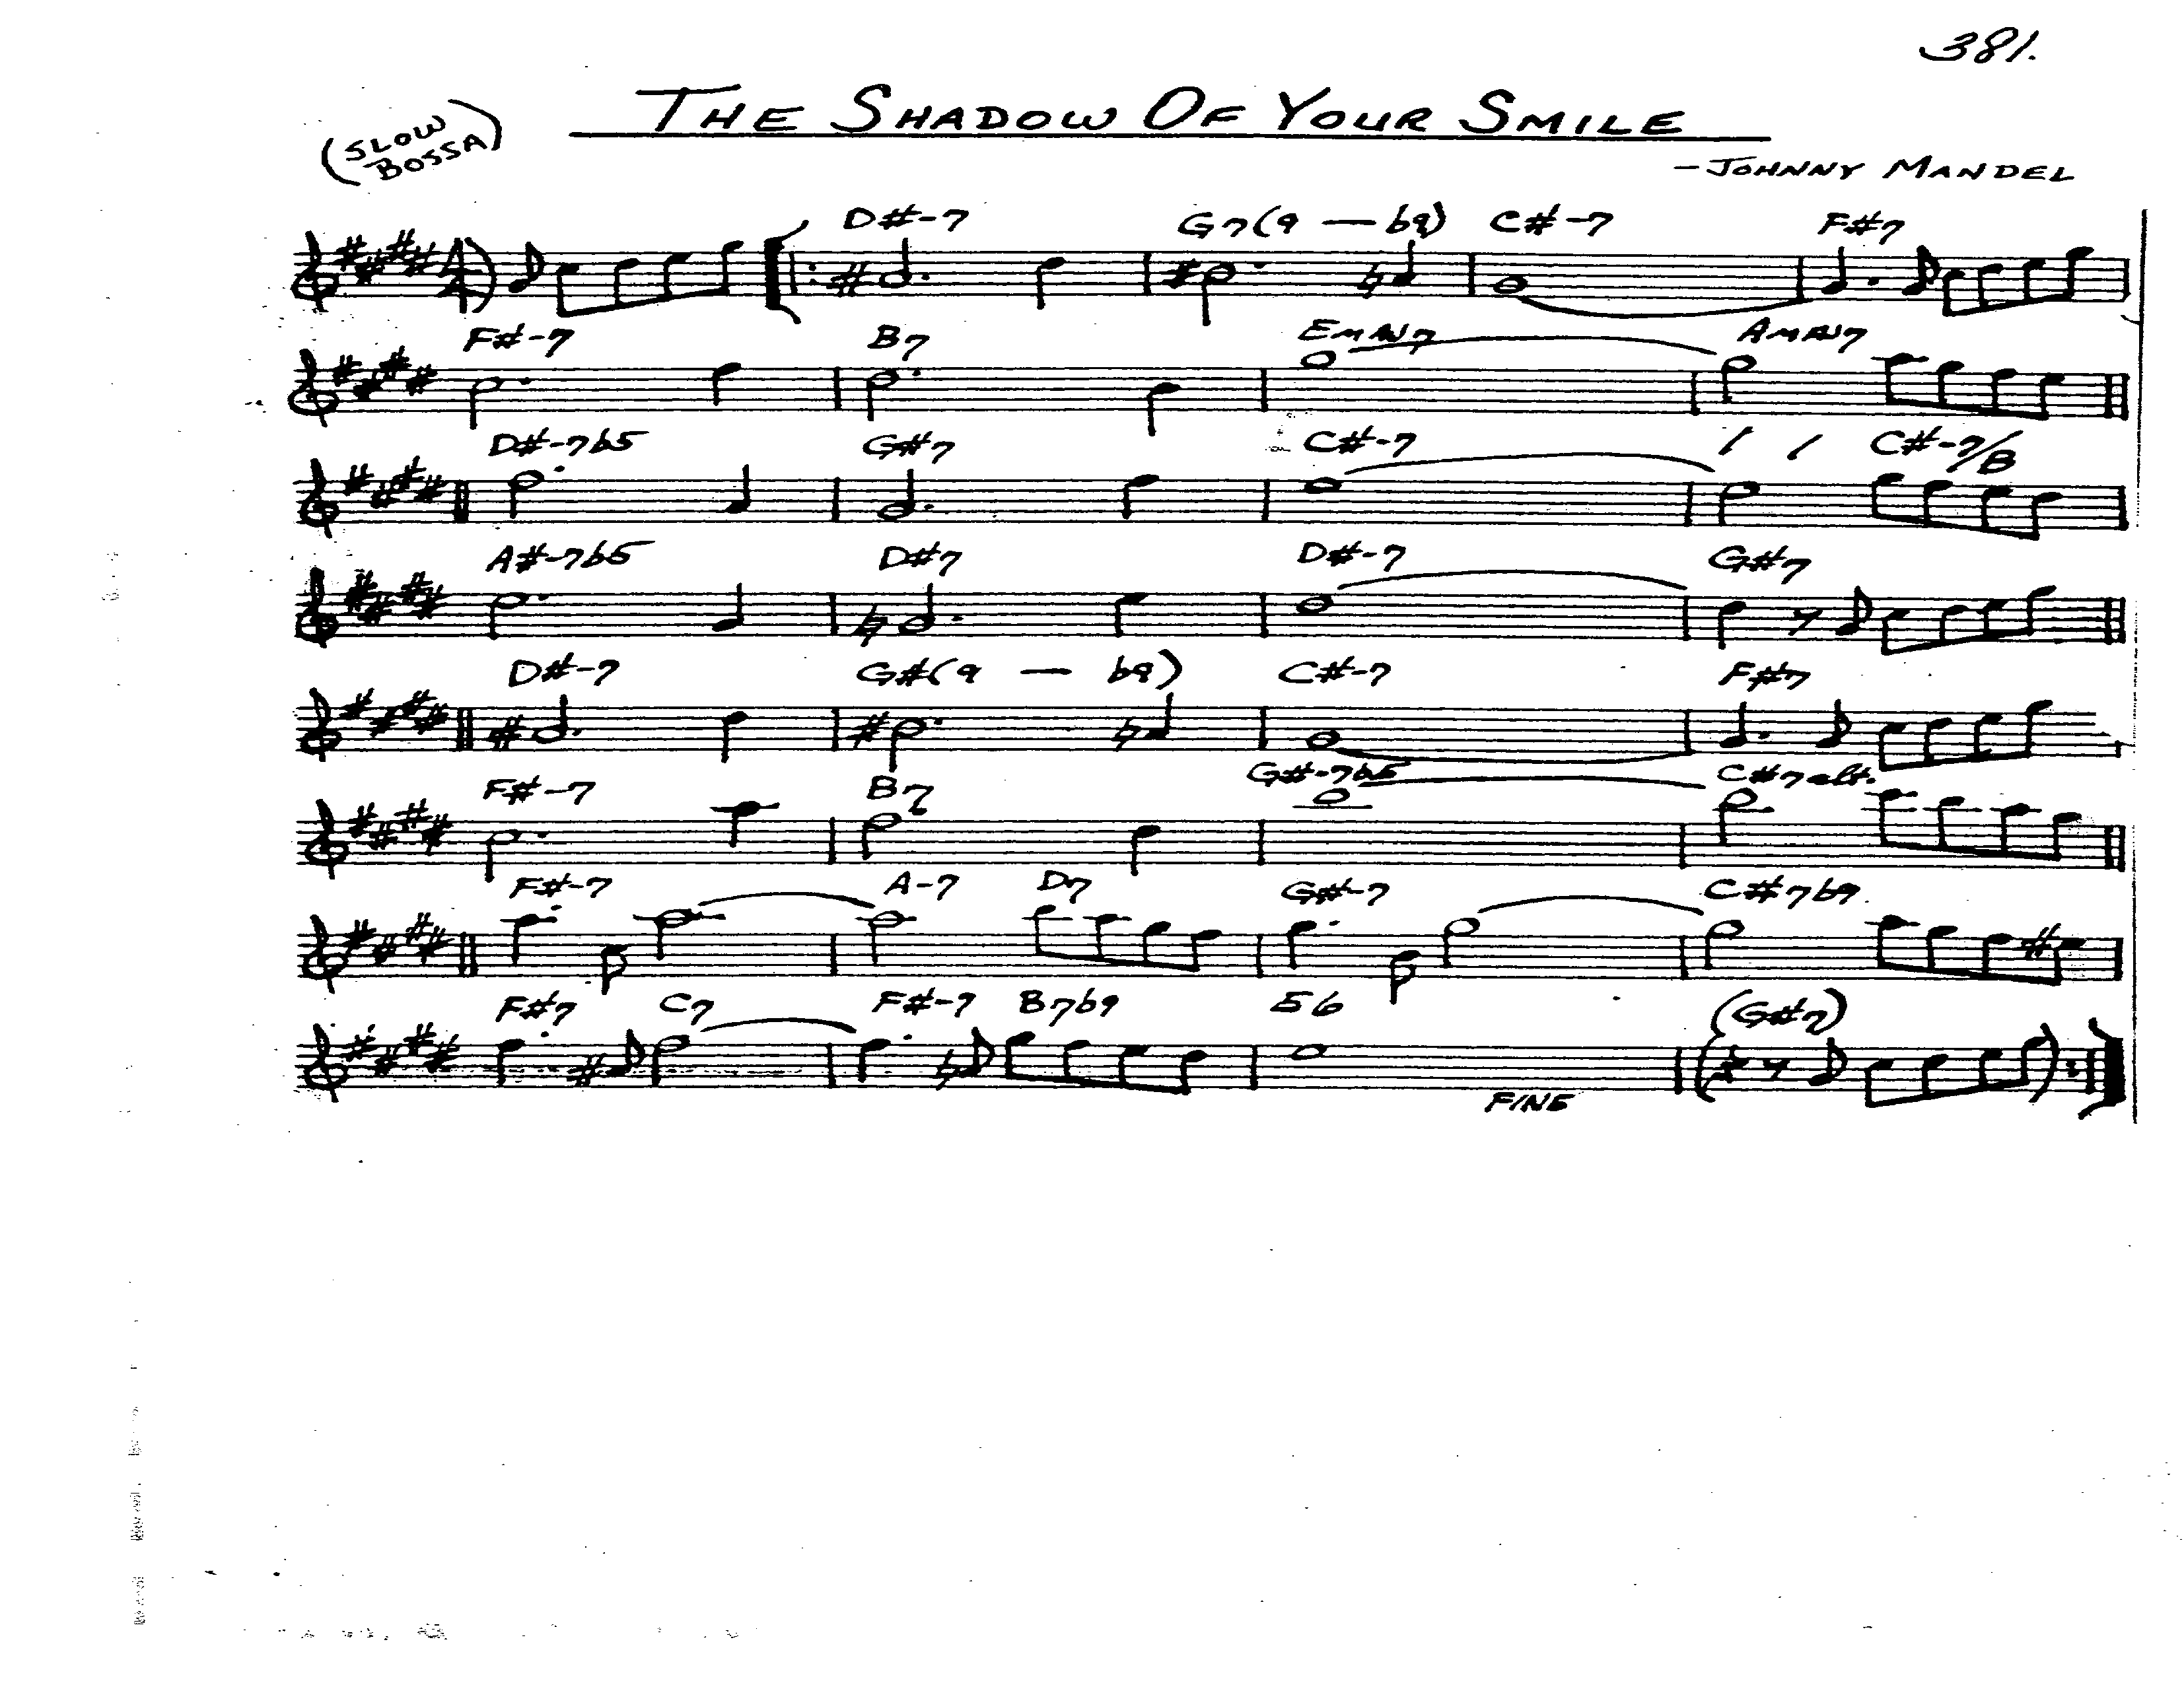 381.
THE SHADOW OF YOUR SMILE
(SLOW
BOSSA)
- JOHNNY MANDEL
D#-7 G7(9 — b9) C#-7 F#7
F#-7 B7 EMAJ7 AMAJ7
D#-7b5 G#7 C#-7 / / C#-7/B
A#-7b5 D#7 D#-7 G#7
D#-7 G#(9 — b9) C#-7 F#7
F#-7 B7 G#-7b5 C#7alt.
F#-7 A-7 D7 G#-7 C#7b9
F#7 C7 F#-7 B7b9 E6 (G#7)
FINE